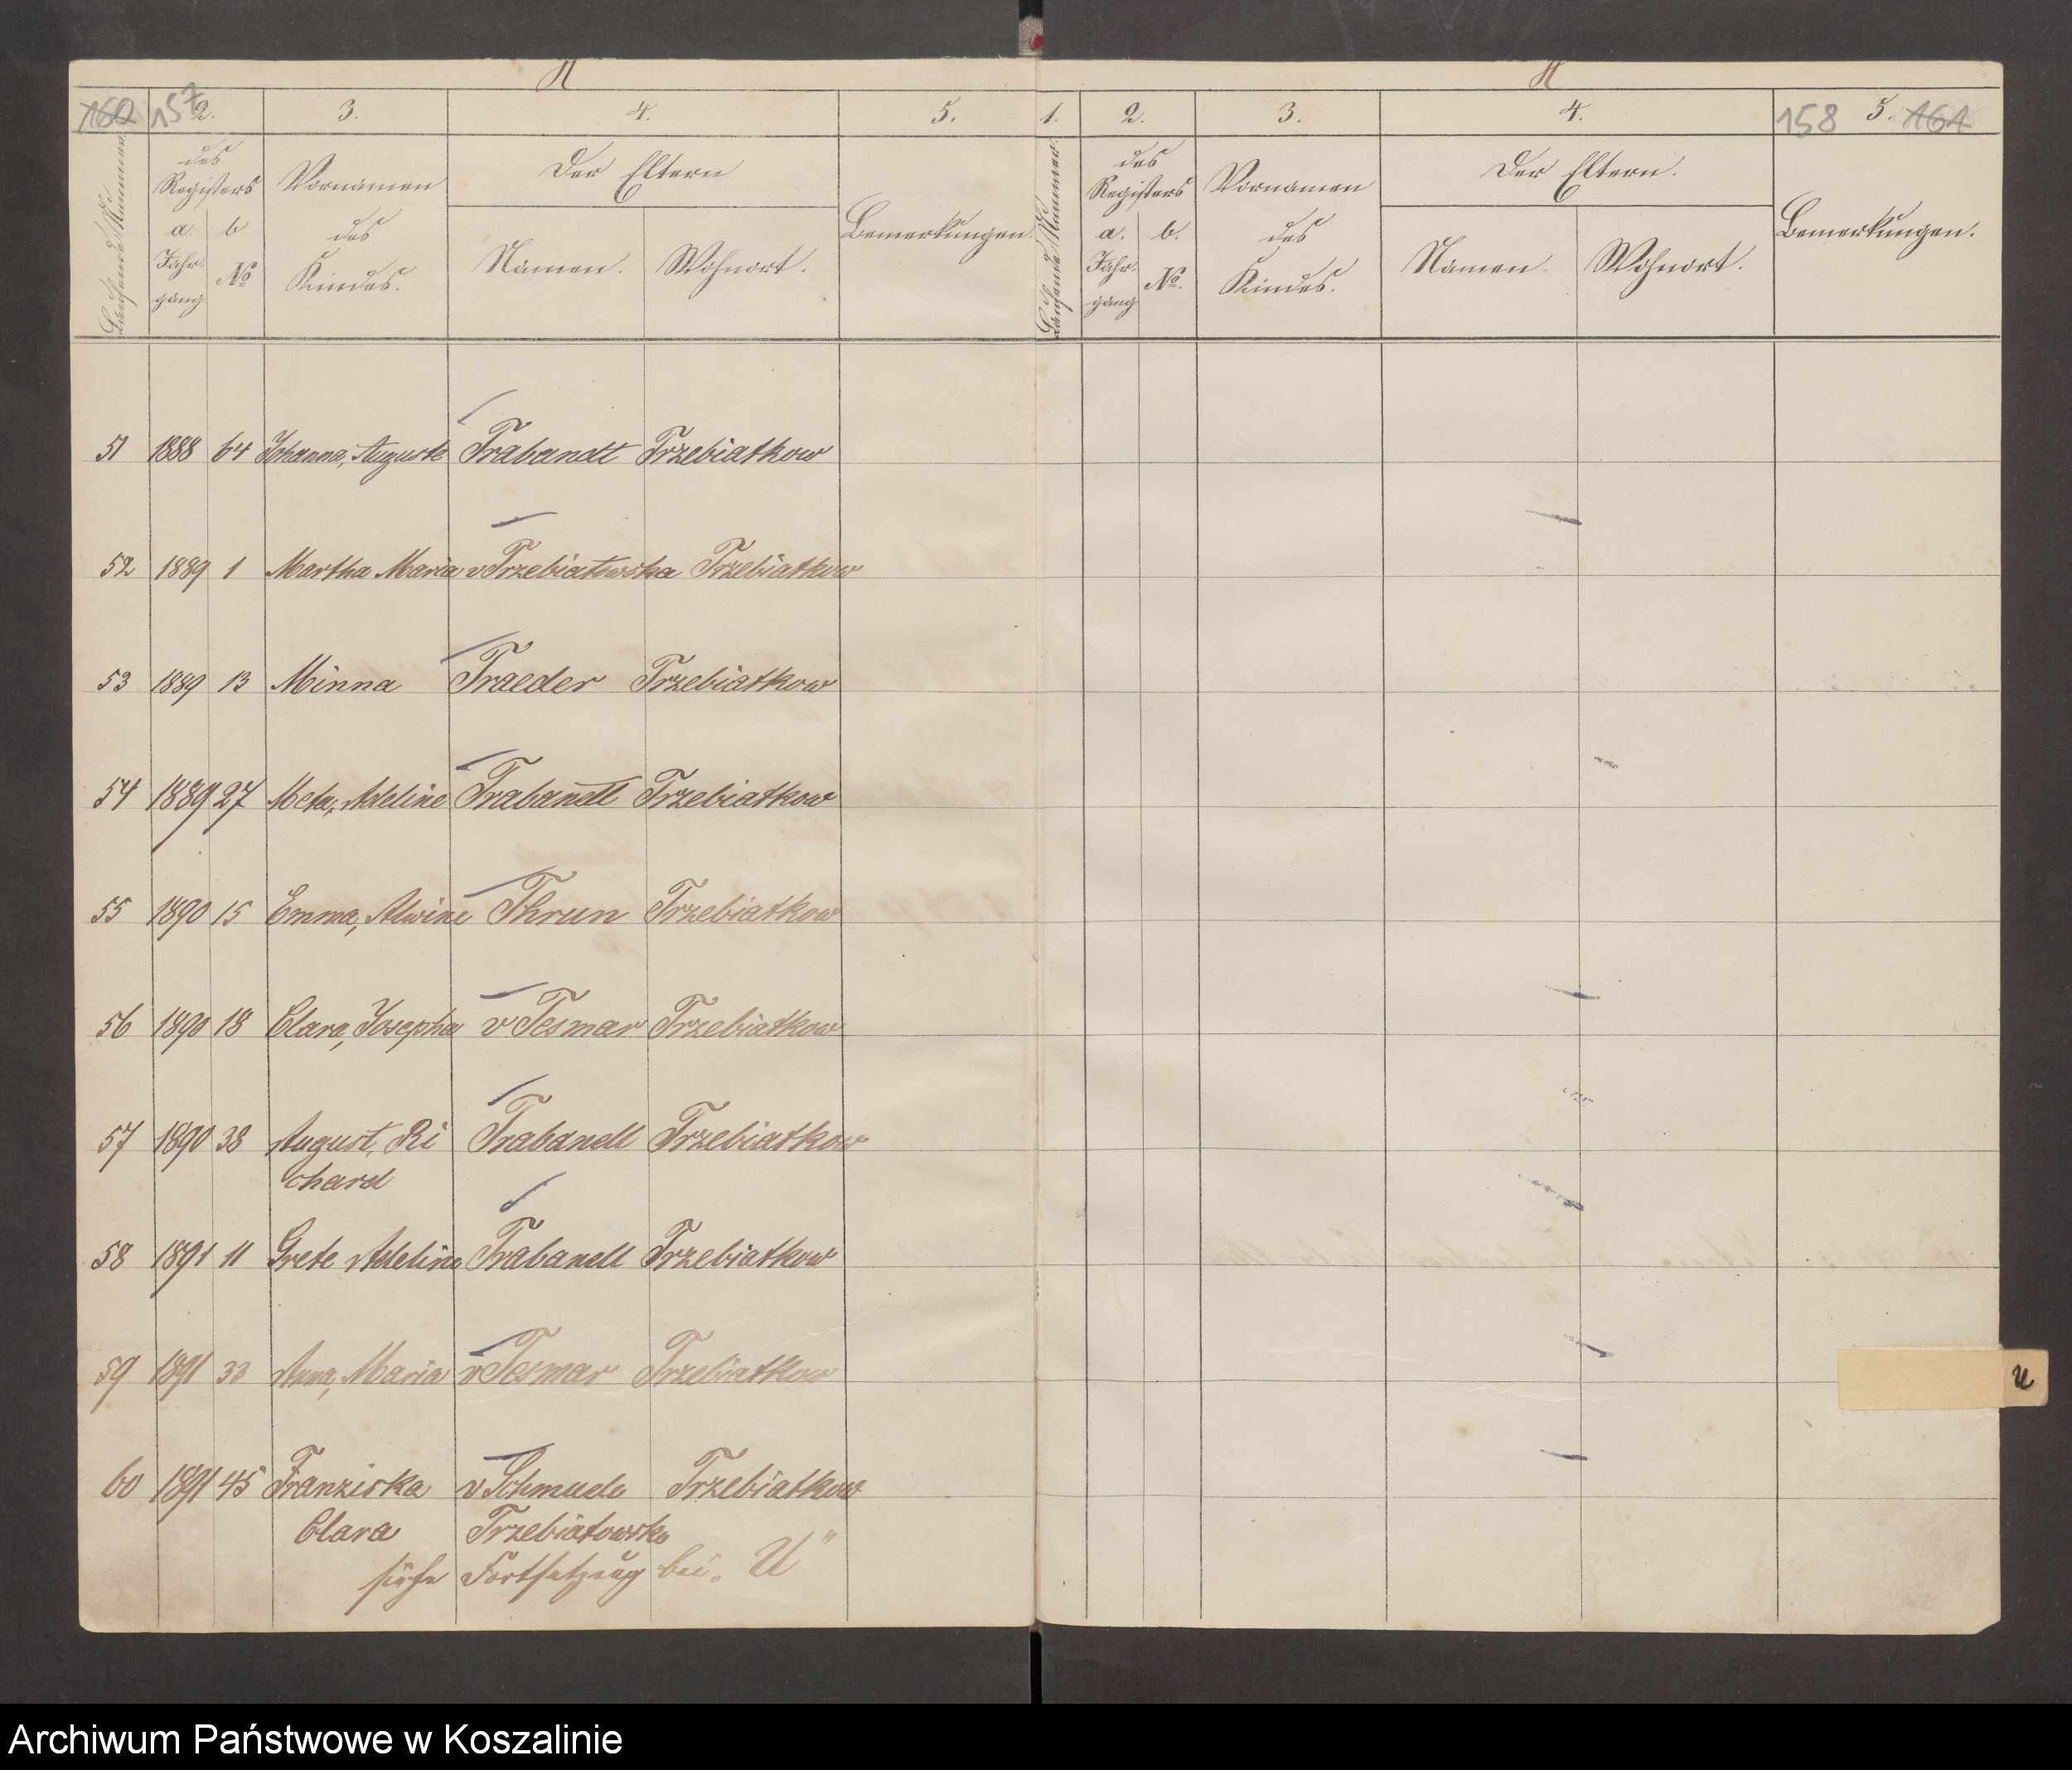 160 157 2. 3. 4. 5.
Laufende Nummer
des Registers
a. Jahrgang
b № 
Vornamen des Kindes.
Der Eltern
Namen. Wohnort.
Bemerkungen.
51 1888 64 Johanna, Auguste Trabandt Trzebiatkow
52 1889 1 Martha Maria v Trzebiatowska Trzebiatkow
53 1889 13 Minna Traeder Trzebiatkow
54 1889 27 Meta, Adeline Trabandt Trzebiatkow
55 1890 15 Emma, Alwine Thrun Trzebiatkow
56 1890 18 Clara, Josepha v Tesmar Trzebiatkow
57 1890 38 August, Ri Trabandt Trzebiatkow
chard
58 1891 11 Grete Adeline Trabandt Trzebiatkow
59 1891 33 Anna, Maria v Tesmar Trzebiatkow
60 1891 45 Franziska v Schmude Trzebiatkow
Clara Trzebiatowska
siehe Fortsetzung bei „U"
1. 2. 3. 4. 158 5. 161
Laufende Nummer.
des Registers
a. Jahrgang
b. №.
Vornamen des Kindes.
Der Eltern.
Namen. Wohnort.
Bemerkungen.
U
Archiwum Państwowe w Koszalinie